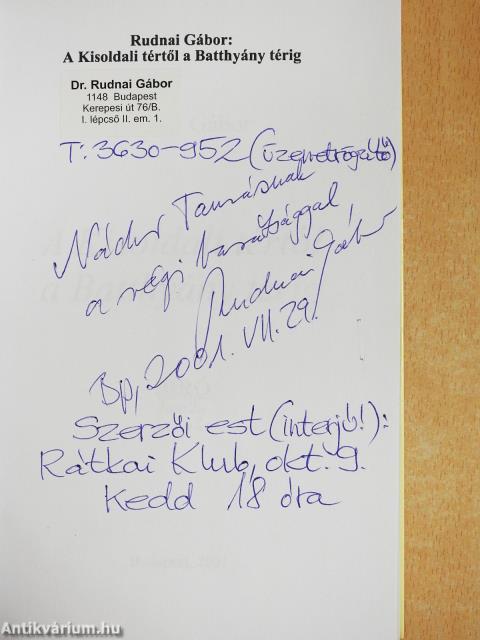 Rudnai Gábor:
A Kisoldali tértől a Batthyány térig
Dr. Rudnai Gábor
1148 Budapest
Kerepesi út 76/B.
I. lépcső II. em. 1.
T: 3630-952 (üzenetrögzítő)
Nádor Tamásnak
a régi barátsággal,
Rudnai Gábor
Bp, 2001. VII. 29.
Szerzői est (interjú!):
Rátkai Klub, okt. 9.
kedd 18 óra
Antikvárium.hu